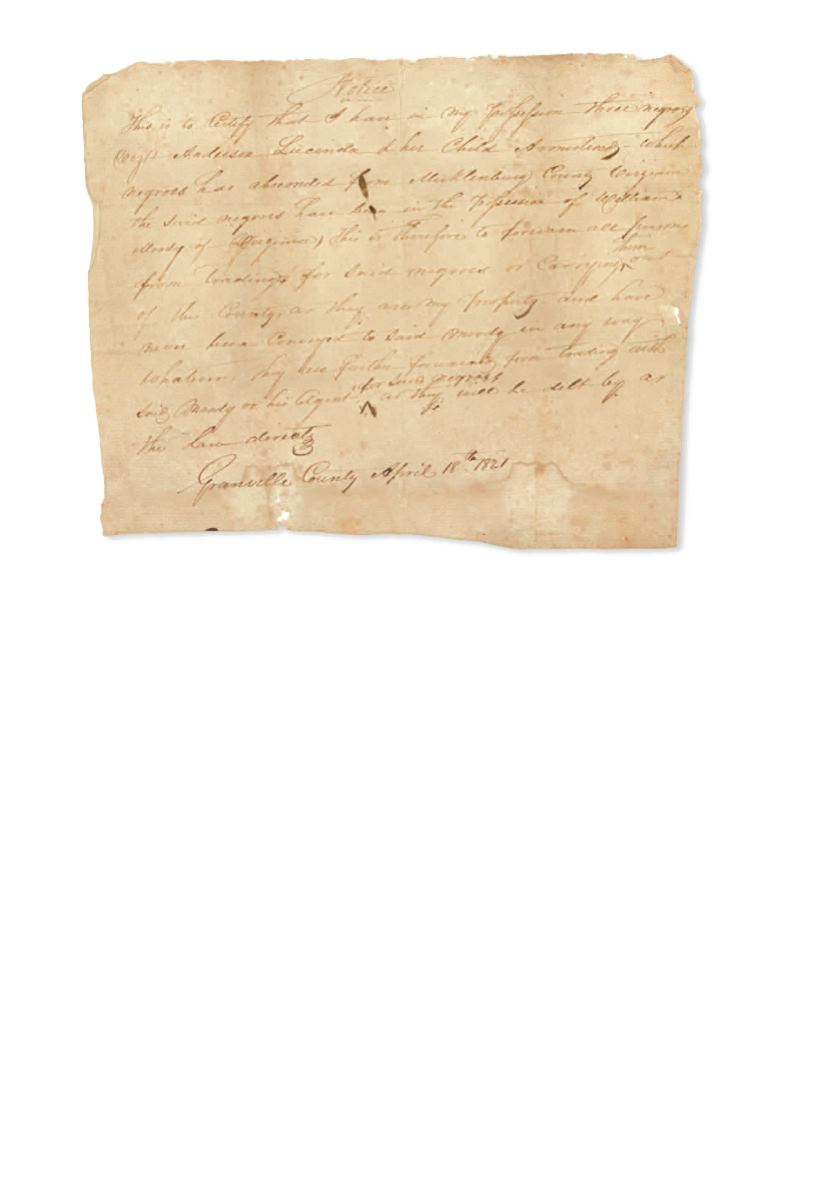 Notice
This is to Certify that I have in my possession three negroes
(viz) Anderson Lucinda & her Child Armistead, which
negroes has absconded from Mecklenburg County Virginia
the said negroes have been in the possession of William
Moody of (Virginia) This is therefore to forewarn all persons
from trading for said negroes or Carrying them out
of this County, as they are my property and have
never been Conveyed to said Moody in any way
Whatever, they are further forewarned from trading with
said Moody or his Agent for said negroes as they will be delt by as
the law directs
Granville County April 18th 1821